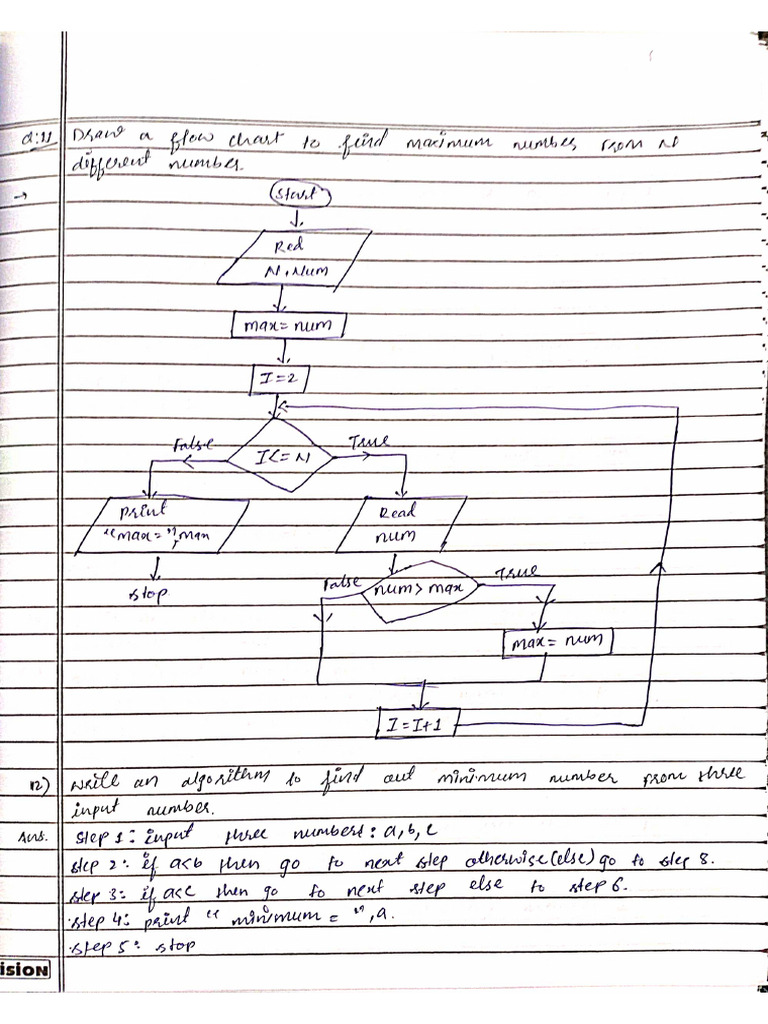 Q:11 Draw a flow chart to find maximum number from N
different number.
→
Start
Red
N, Num
max = num
I = 2
False
I <= N
True
Print
"max = ", max
Stop
Read
num
False
num > max
True
max = num
I = I+1
12) Write an algorithm to find out minimum number from three
input number.
Ans. Step 1: input three numbers: a, b, c
Step 2: if a<b then go to next step otherwise (else) go to step 8.
Step 3: if a<c then go to next step else to step 6.
Step 4: print " minimum = ", a.
Step 5: stop
ision